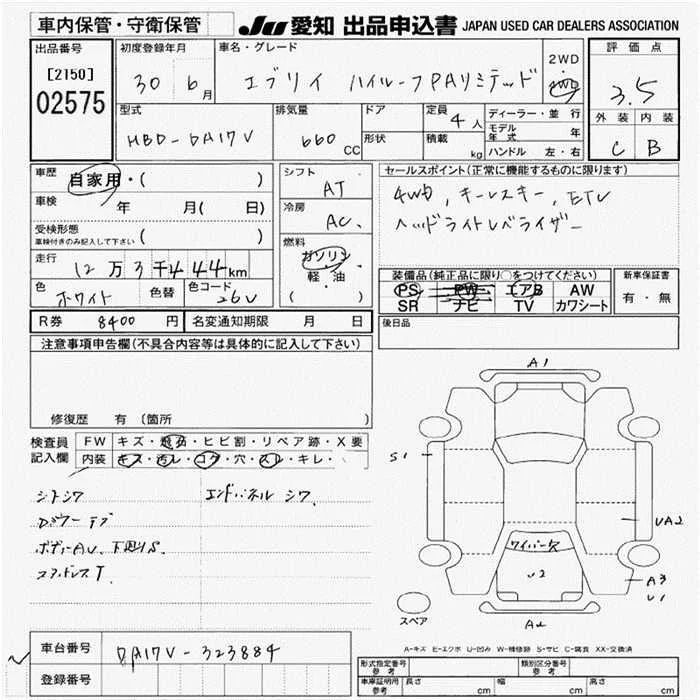 車内保管・守衛保管
JU 愛知 出品申込書 JAPAN USED CAR DEALERS ASSOCIATION
出品番号
[2150]
02575
初度登録年月
30 6月
車名・グレード
エブリイ ハイルーフPAリミテッド
2WD
・
4WD
評価点
3.5
外装 内装
C B
型式
HBD-DA17V
排気量
660 CC
ドア
形状
定員
4人
積載
kg
ディーラー・並行
モデル年式 年
ハンドル 左・右
車歴
自家用・( )
車検 年 月( 日)
受検形態
車検付きのみ記入して下さい ( )
走行
12万3千444km
色
ホワイト
色替
色コード
26V
シフト
AT
冷房
AC
燃料
ガソリン
軽・油
( )
セールスポイント(正常に機能するものに限ります)
4WD, キーレスキー, ETC
ヘッドライトレベライザー
装備品(純正品に限り○をつけてください)
PS PW エアB AW
SR ナビ TV カワシート
新車保証書
有・無
R券 8400 円
名変通知期限 月 日
後日品
注意事項申告欄(不具合内容等は具体的に記入して下さい)
修復歴 有 (箇所 )
検査員
記入欄
FW キズ・飛石・ヒビ割・リペア跡・X要
内装 キズ・汚レ・コゲ・穴・スレ・キレ・
シートシワ エンドパネル シワ
ボデーAU、下廻りS
A1
S1
UA2
ワイパー欠
U2
A3
U1
A2
スペア
A-キズ E-エクボ U-凹み W-補修跡 S-サビ C-腐食 XX-交換済
車台番号
DA17V-323884
登録番号
形式指定番号
参考
類別区分番号
参考
車庫証明用
参考
長さ cm 幅 cm 高さ cm